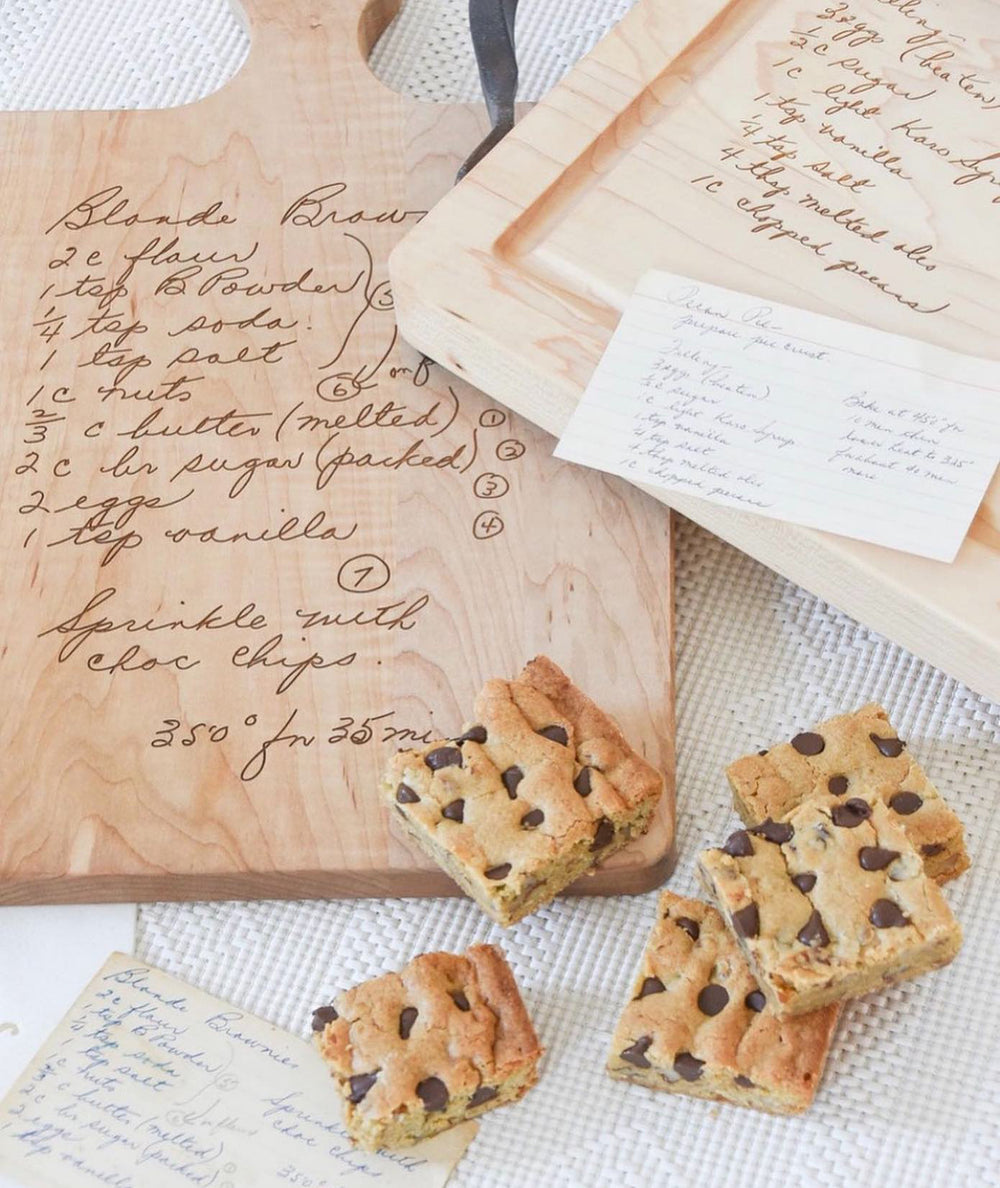 Blonde Brow
2 c flour
1 tsp B Powder
⑤
1/4 tsp soda.
1 tsp salt
1 c nuts
⑥
2/3 c butter (melted)
①
2 c br sugar (packed)
②
2 eggs
③
1 tsp vanilla
④
⑦
Sprinkle with
choc chips.
350° for 35 mi
3 eggs (beaten)
1/2 c sugar
1 c light Karo Syr
1 tsp vanilla
1/4 tsp salt
4 tbsp melted oleo
1 c chopped pecans
Pecan Pie
prepare pie crust
Filling
3 eggs (beaten)
1/2 c sugar
1 c light Karo Syrup
1 tsp vanilla
1/4 tsp salt
4 tbsp melted oleo
1 c chopped pecans
Bake at 450° for
10 min then
lower heat to 325°
for about 40 min
more
Blonde Brownies
2 c flour
1 tsp B Powder
1/4 tsp soda
1 tsp salt
1 c nuts
2/3 c butter (melted)
2 c br sugar (packed)
2 eggs
1 tsp vanilla
Sprinkle with
choc chips
350°